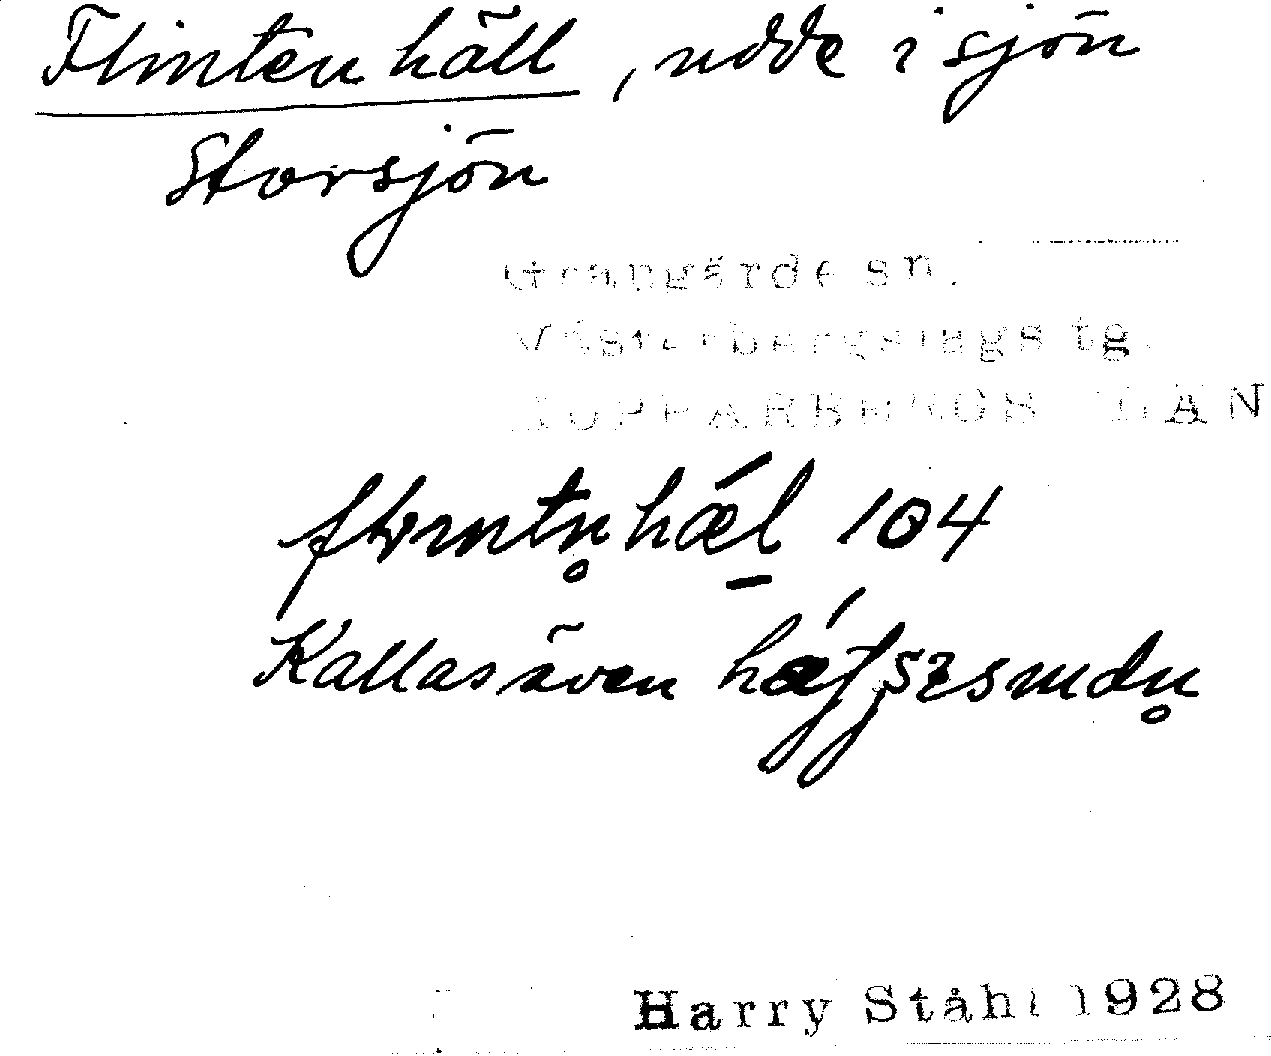 Flintenhäll, udde i sjön
Storsjön
Grangärde sn.
Västerbergslags tg.
KOPPARBERGS LÄN
104
Kallas även
Harry Ståhl 1928